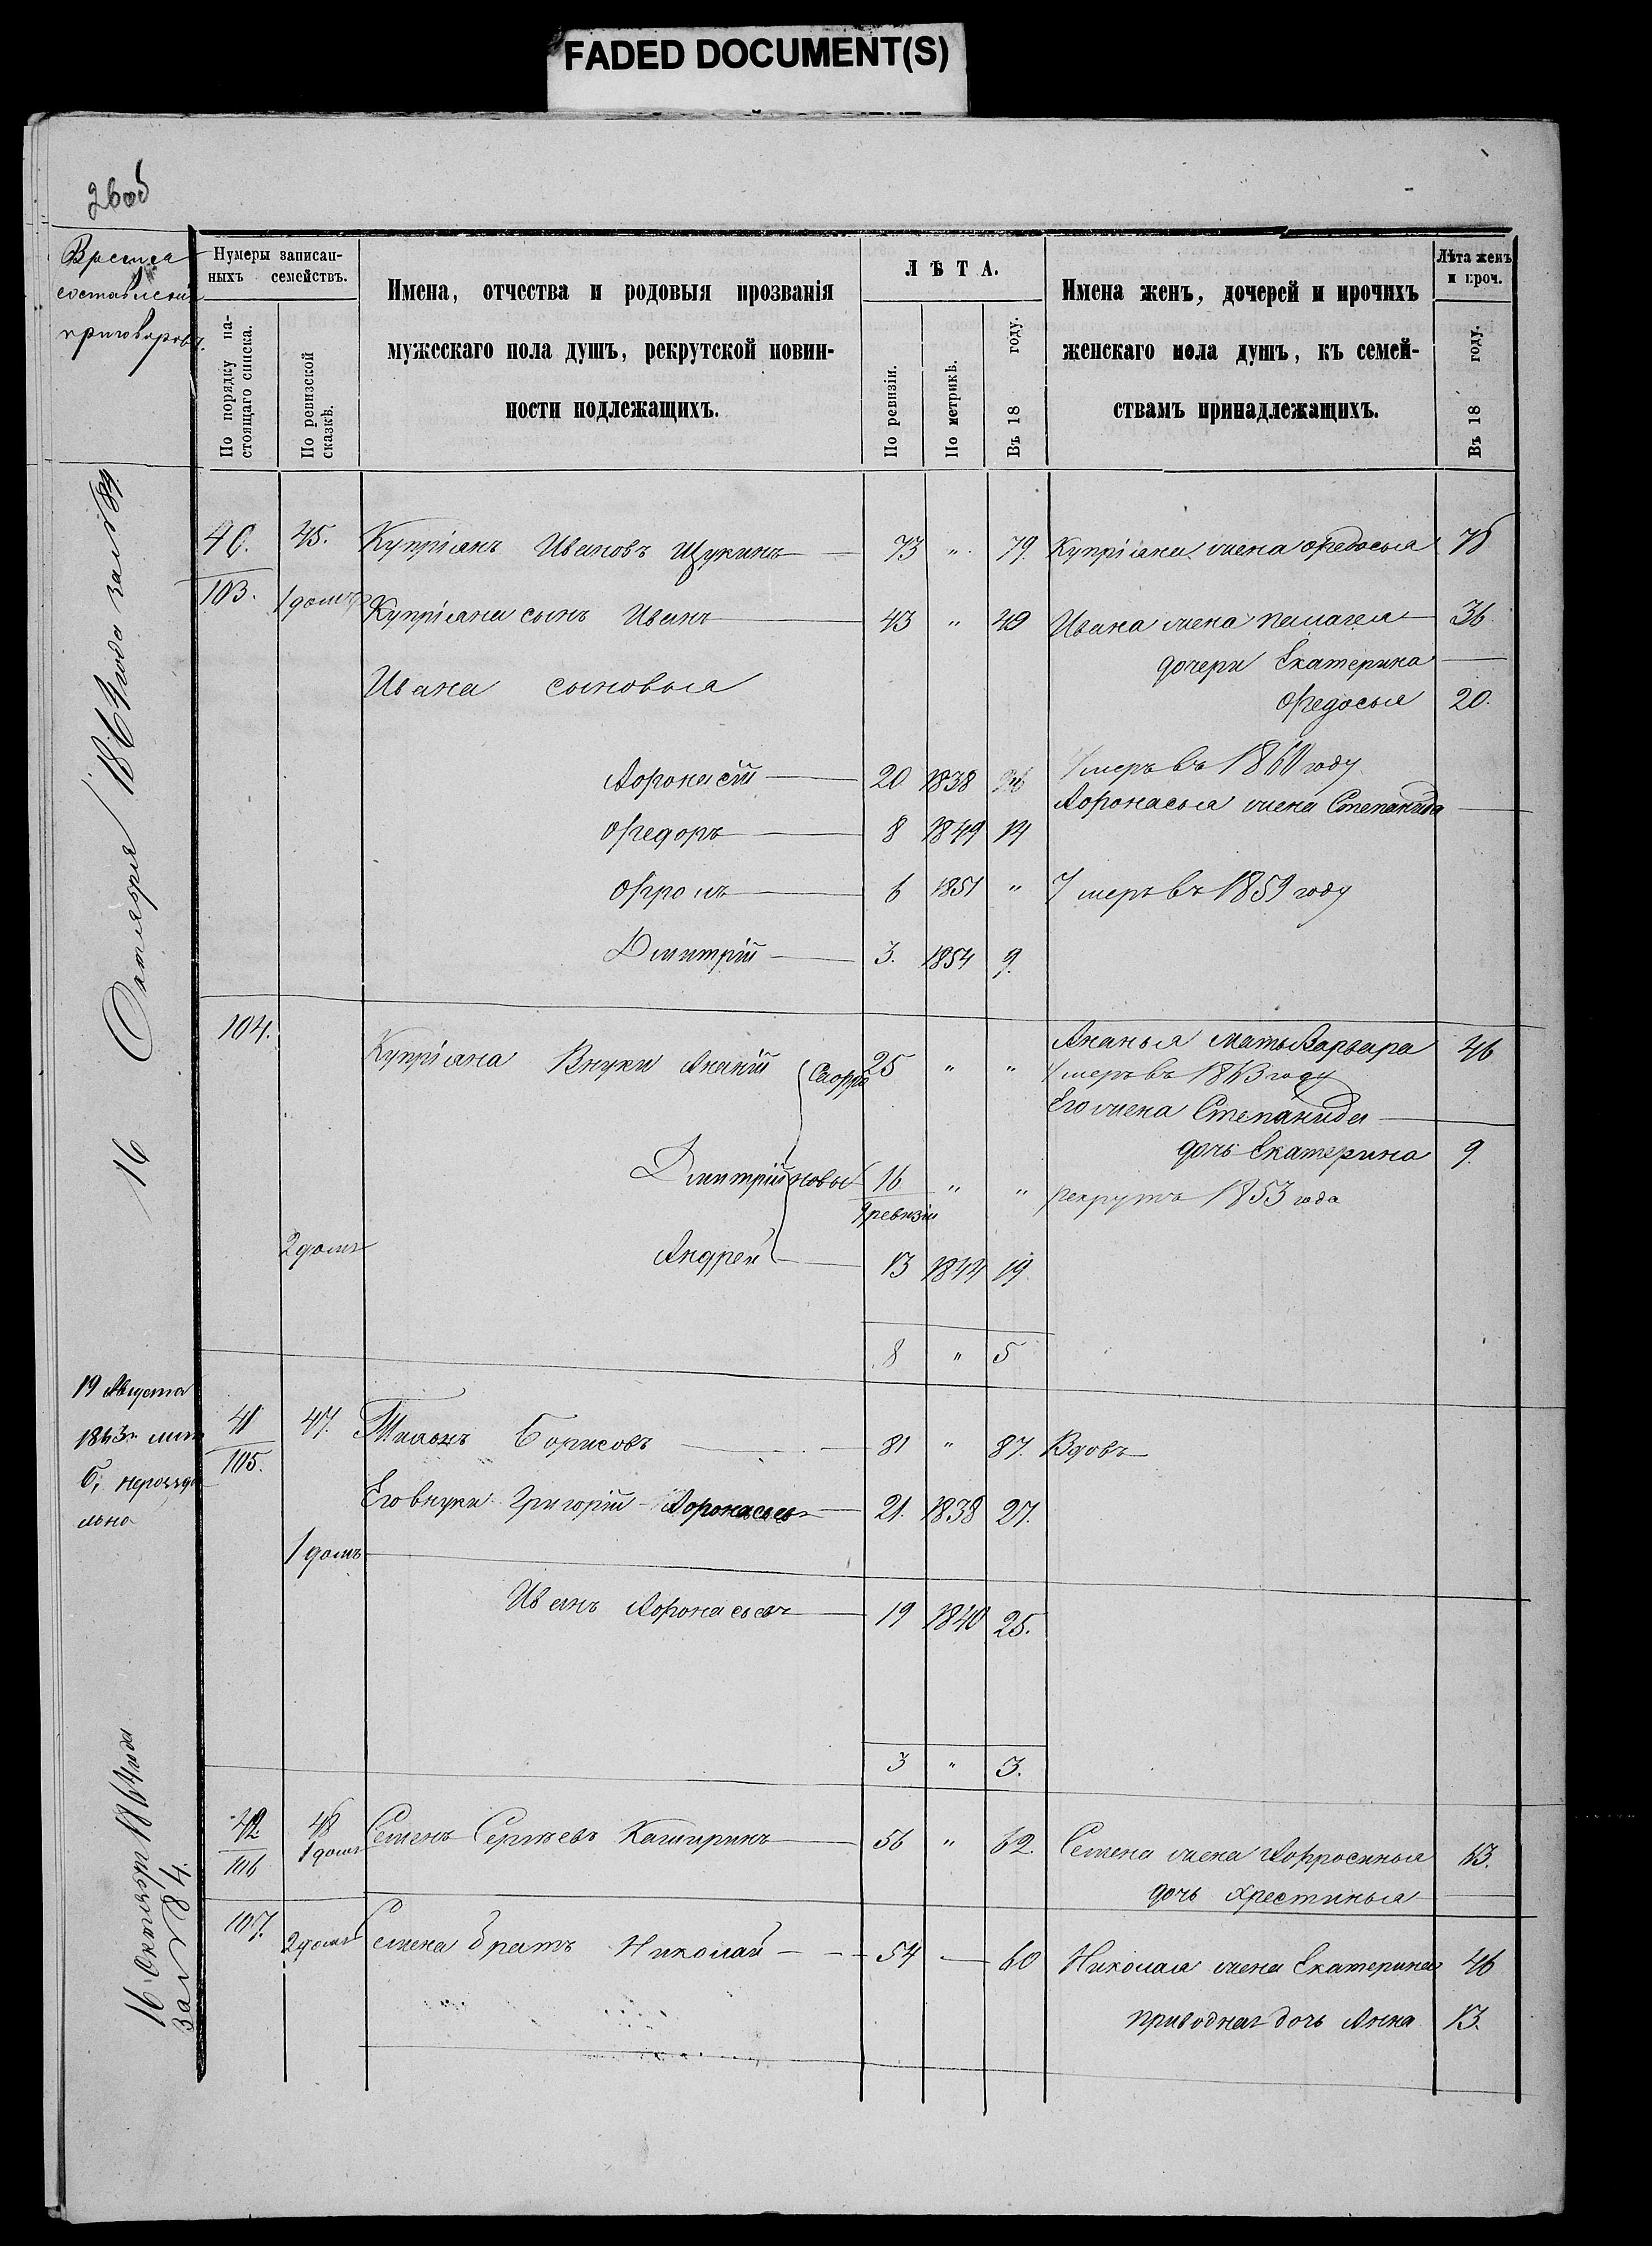 FADED DOCUMENT(S)
26об
Время
составленія
приговоровъ.
Нумеры записан-
ныхъ семействъ.
По порядку на-
стоящаго списка.
По ревизской
сказкѣ.
Имена, отчества и родовыя прозванія
мужескаго пола душъ, рекрутской повин-
ности подлежащихъ.
ЛѢТА.
По ревизіи.
По метрикѣ.
Въ 18 году.
Имена женъ, дочерей и прочихъ
женскаго пола душъ, къ семей-
ствамъ принадлежащихъ.
Лѣта женъ
и проч.
Въ 18 году.
16 Октября 1864 года за № 84
40. 45. Купріянъ Ивановъ Щукинъ 73 " 79. Купріяна жена Федосья 78
103. 1 домъ Купріяна сынъ Иванъ 43 " 49 Ивана жена Пелагея 36
дочери Екатерина
Ивана сыновья
Федосья 20.
Афонасій 20 1838 26 Умеръ въ 1860 году
Афонасья жена Степанида
Федоръ 8 1849 14
Фролъ 6 1851 " Умеръ въ 1859 году
Дмитрій 3. 1854 9.
104. Ананья мать Варвара 46
Купріяна Внуки Ананій 25 " " Умеръ въ 1863 году
Его жена Степанида
дочь Екатерина 9.
Дмитрій 16 " " рекрутъ 1853 года
9 ревизіи
2 домъ Андрей 13 1844 19.
8 " 5
19 Августа
1863 г.
41 47. Борисовъ 81 " 87. Вдовъ
105.
Его внуки Григорій Афонасьевъ 21. 1838 27.
1 домъ
Иванъ Афонасьевъ 19 1840 25.
3 " 3.
16 Октября 1864 года
за № 84.
42 48 Семенъ Сергѣевъ Каширинъ 56 " 62. Семена жена Афросинья 63.
106 1 домъ
дочь Хрестинья
107. 2 домъ Семена братъ Николай 54 — 60 Николая жена Екатерина 46
приводная дочь Анна 13.